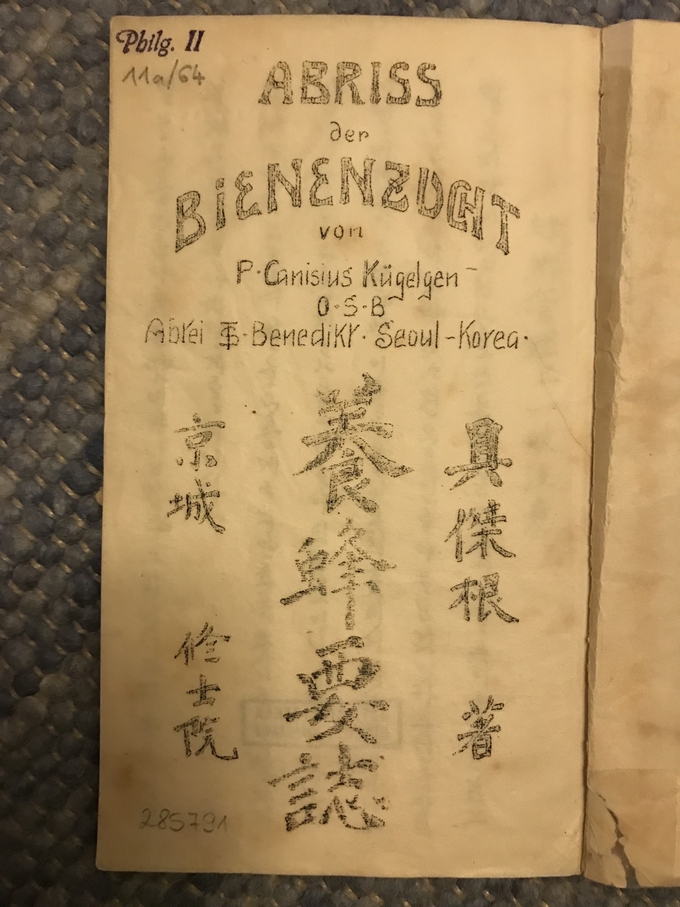 Philg. II
11a/64
ABRISS
der
BIENENZUCHT
von
P. Canisius Kügelgen
O.S.B
Abtei St. Benedikt. Seoul-Korea.
具傑根 著
養蜂要誌
京城 修士院
285791